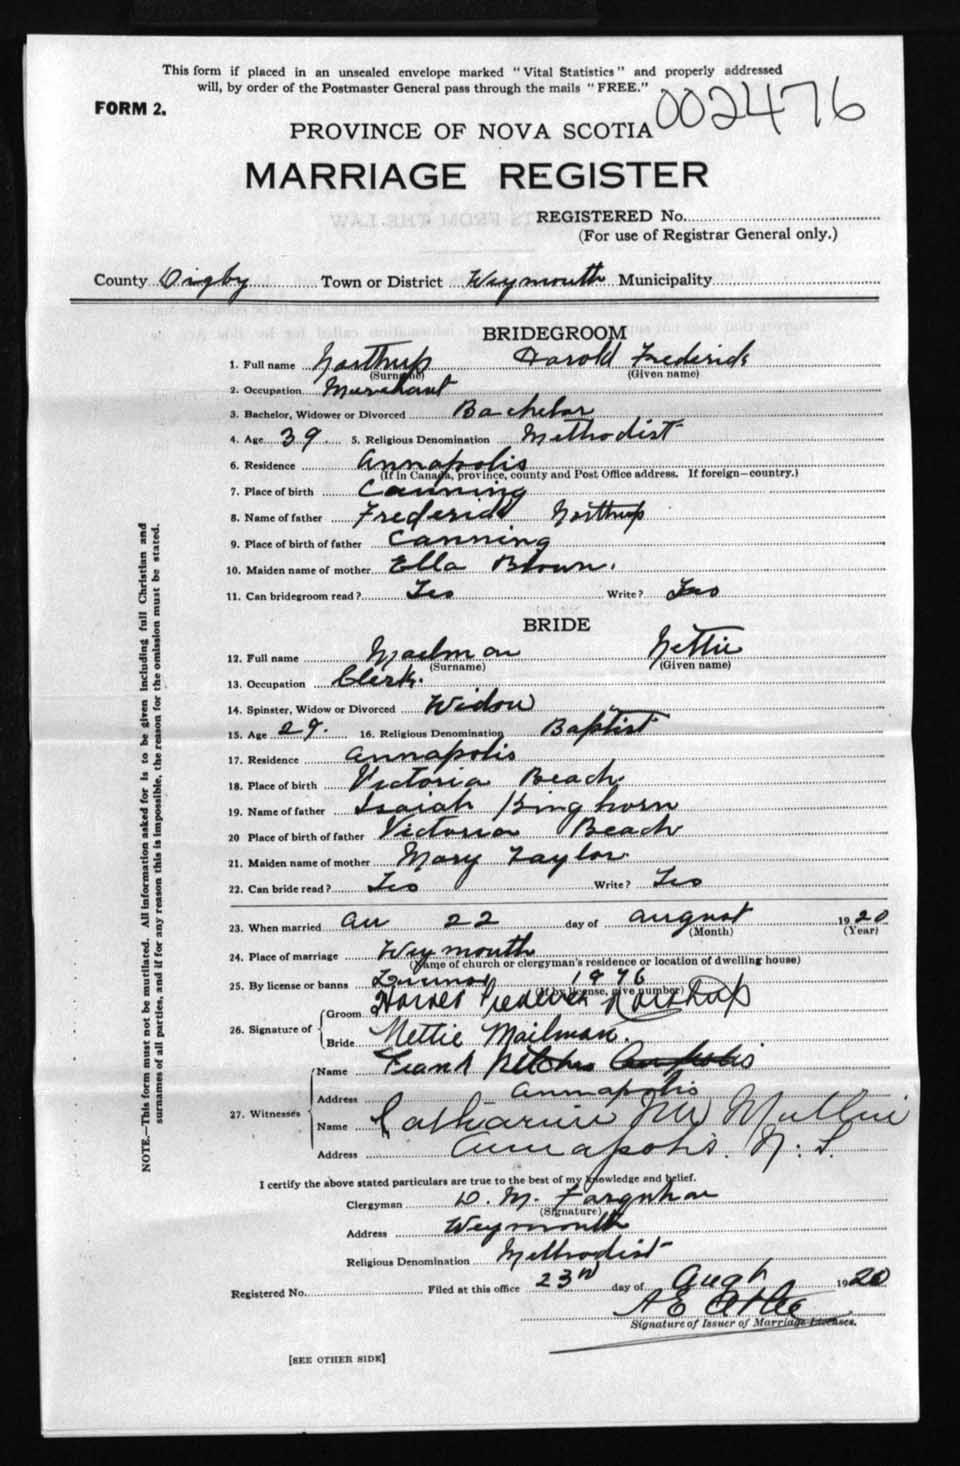 This form if placed in an unsealed envelope marked "Vital Statistics" and properly addressed
will, by order of the Postmaster General pass through the mails "FREE."
002476
FORM 2.
PROVINCE OF NOVA SCOTIA
MARRIAGE REGISTER
REGISTERED No.
(For use of Registrar General only.)
County Digby Town or District Weymouth Municipality
BRIDEGROOM
1. Full name Northup Harold Frederick
(Surname) (Given name)
2. Occupation Merchant
3. Bachelor, Widower or Divorced Bachelor
4. Age 39 5. Religious Denomination Methodist
6. Residence Annapolis
(If in Canada, province, county and Post Office address. If foreign—country.)
7. Place of birth Canning
8. Name of father Frederick Northup
9. Place of birth of father Canning
10. Maiden name of mother Ella Brown.
11. Can bridegroom read? Yes Write? Yes
BRIDE
12. Full name Mailman Nettie
(Surname) (Given name)
13. Occupation Clerk.
14. Spinster, Widow or Divorced Widow
15. Age 29. 16. Religious Denomination Baptist
17. Residence Annapolis
18. Place of birth Victoria Beach
19. Name of father Isaiah Kinghorn
20 Place of birth of father Victoria Beach
21. Maiden name of mother Mary Taylor
22. Can bride read? Yes Write? Yes
23. When married on 22 day of August 1920
(Month) (Year)
24. Place of marriage Weymouth
(Name of church or clergyman's residence or location of dwelling house)
25. By license or banns License 1976
(If by license, give number)
26. Signature of Groom Harold Frederick Northup
Bride Nettie Mailman.
27. Witnesses Name Frank
Address Annapolis
Name Katharine Mc Mullin
Address Annapolis. N. S.
I certify the above stated particulars are true to the best of my knowledge and belief.
Clergyman D. M. Farquhar
(Signature)
Address Weymouth
Religious Denomination Methodist
Registered No. Filed at this office 23rd day of Augt 1920
A E
Signature of Issuer of Marriage Licenses.
[SEE OTHER SIDE]
NOTE.—This form must not be mutilated. All information asked for is to be given including full Christian and
surnames of all parties, and if for any reason this is impossible, the reason for the omission must be stated.